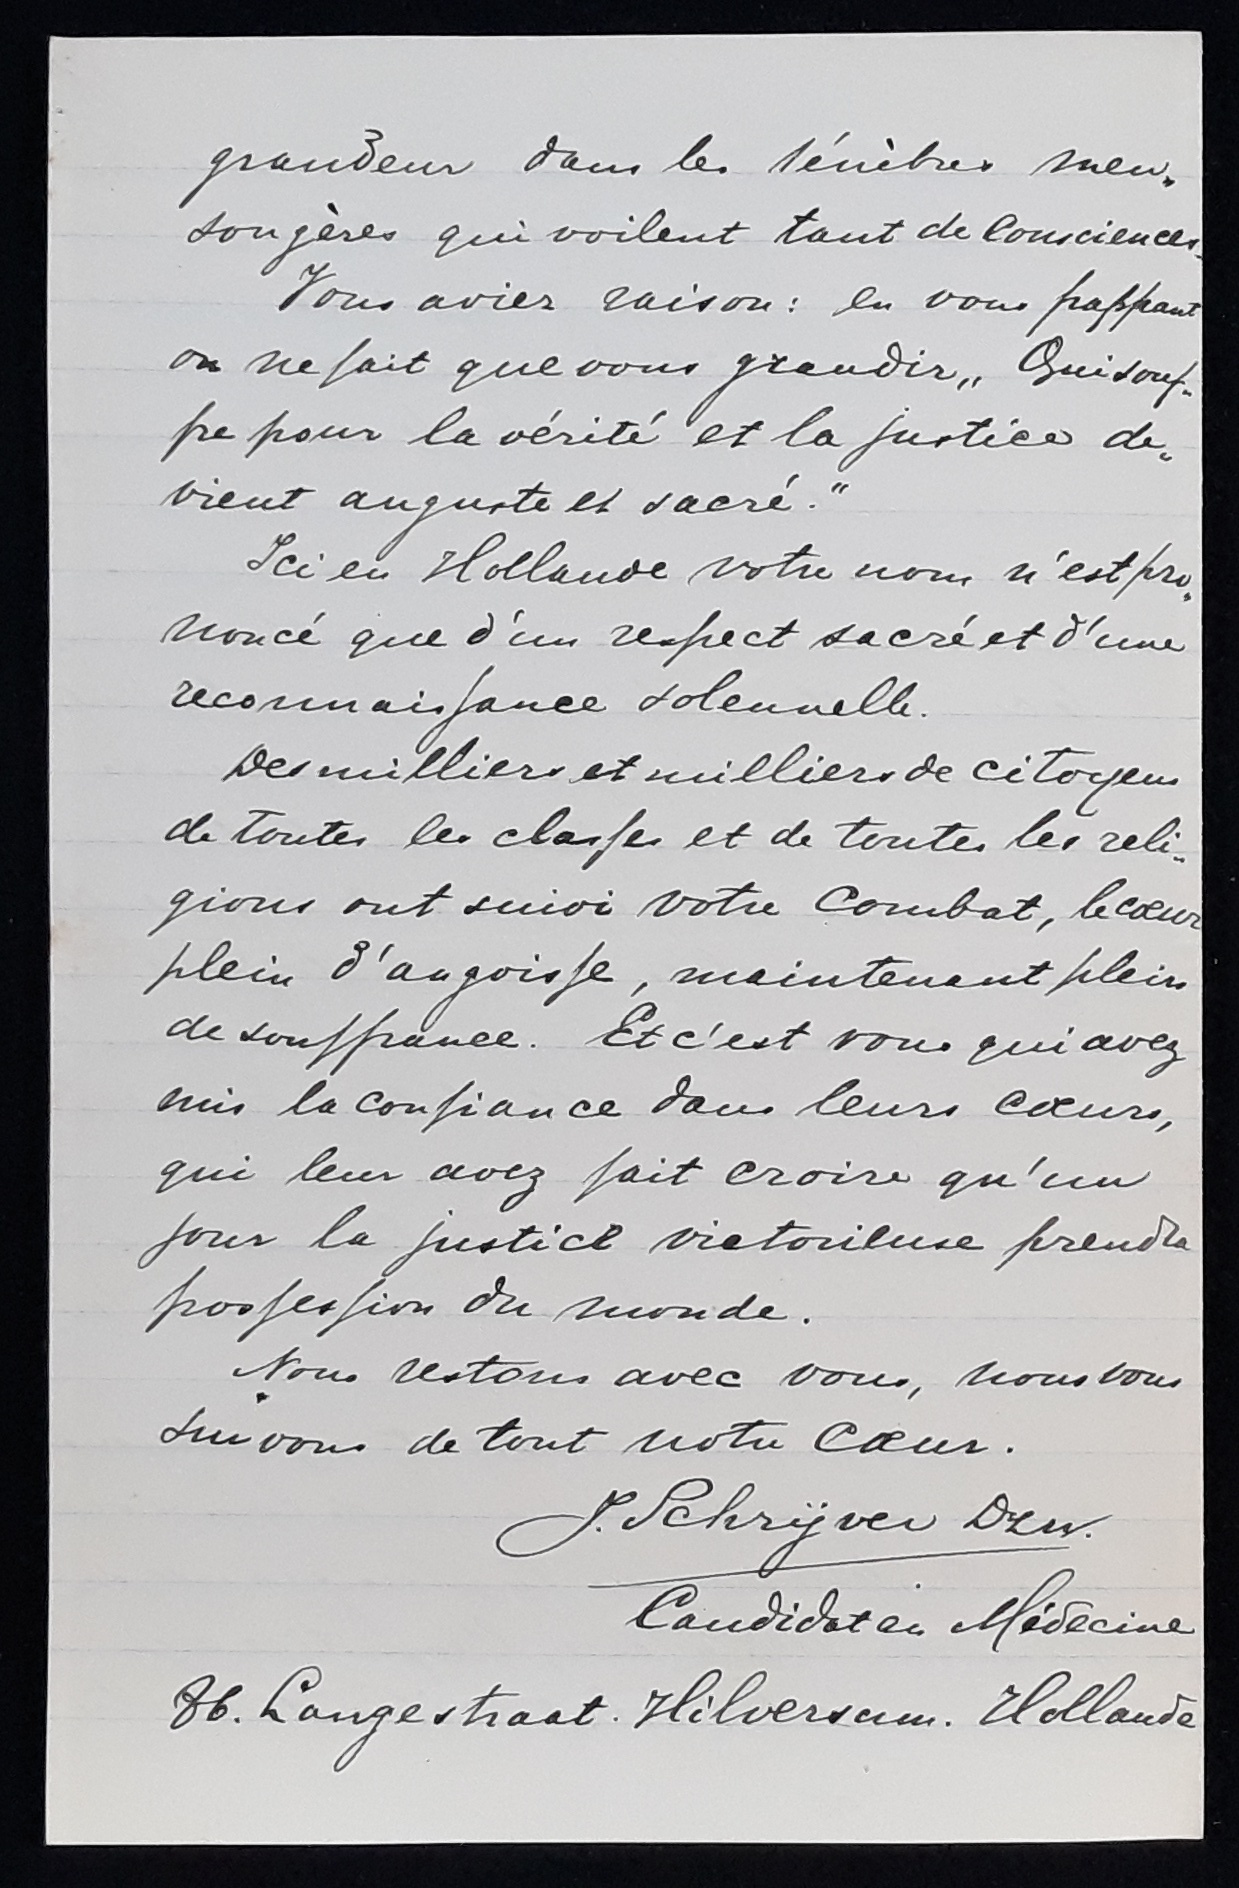 grandeur dans les ténèbres men„
songères qui voilent tant de Consciences.
Vous aviez raison: en vous frappant
on ne fait que vous grandir „ Qui souf„
fre pour la vérité et la justice de„
vient auguste et sacré.“
Ici en Hollande votre nom n'est pro„
noncé que d'un respect sacré et d'une
reconnaissance solennelle.
Des milliers et milliers de citoyens
de toutes les classes et de toutes les reli„
gions ont suivi votre Combat, le cœur
plein d'angoisse, maintenant plein
de souffrance. Et c'est vous qui avez
mis la confiance dans leurs cœurs,
qui leur avez fait croire qu'un
jour la justice victorieuse prendra
possession du monde.
Nous restons avec vous, nous vous
suivons de tout notre Cœur.
J. Schrijver Dzn.
Candidat en Médecine
86. Langestraat. Hilversum. Hollande